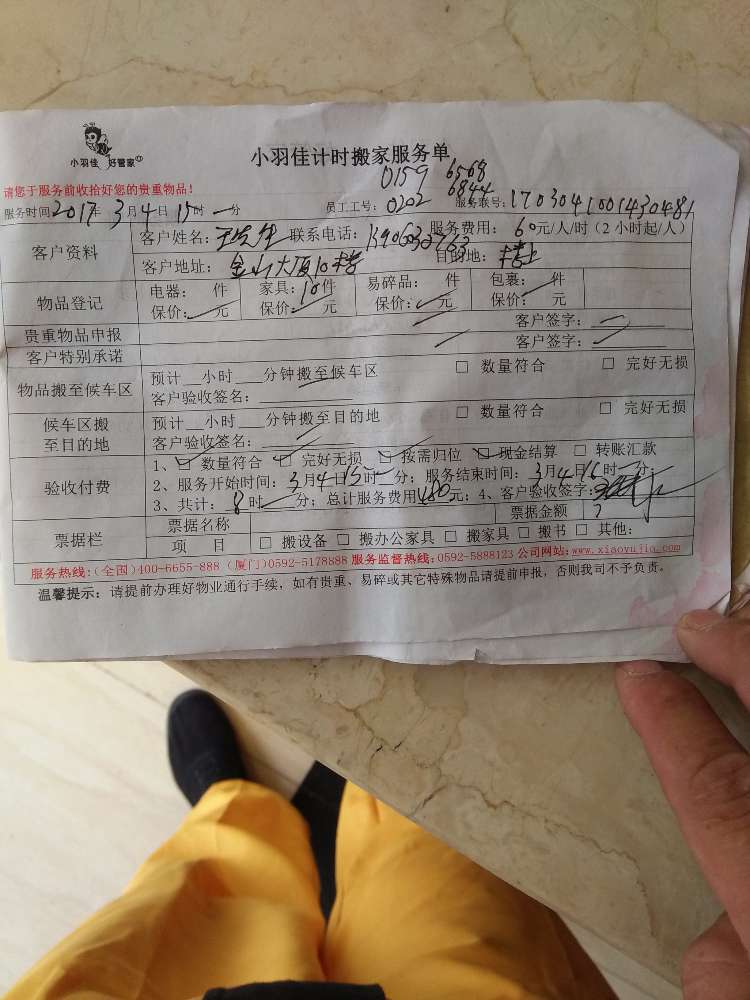 小羽佳 好管家
小羽佳计时搬家服务单
请您于服务前收拾好您的贵重物品!
0159 6568
服务时间2017年3月4日15时一分 员工工号: 0202 6844 服务联号: 1703041001430481
客户资料 客户姓名: 联系电话: 服务费用: 60元/人/时(2小时起/人)
客户地址: 金山大厦10楼 目的地: 楼上
物品登记 电器: 件 家具: 10件 易碎品: 件 包裹: 件
保价: 元 保价: 元 保价: 元 保价: 元
贵重物品申报 客户签字:
客户特别承诺 客户签字:
物品搬至候车区 预计__小时___分钟搬至候车区 □ 数量符合 □ 完好无损
客户验收签名:
候车区搬至目的地 预计__小时___分钟搬至目的地 □ 数量符合 □ 完好无损
客户验收签名:
验收付费 1、☑ 数量符合 ☑ 完好无损 ☑ 按需归位 ☑ 现金结算 □ 转账汇款
2、服务开始时间: 3月4日15时一分; 服务结束时间: 3月4日16时一分;
3、共计: 8时 分; 总计服务费用480元; 4、客户验收签字:
票据栏 票据名称 票据金额
项 目 □ 搬设备 □ 搬办公家具 □ 搬家具 □ 搬书 □ 其他:
服务热线:(全国)400-6655-888 (厦门)0592-5178888 服务监督热线:0592-5888123 公司网站:www.xiaoyujia.com
温馨提示: 请提前办理好物业通行手续, 如有贵重、易碎或其它特殊物品请提前申报, 否则我司不予负责。